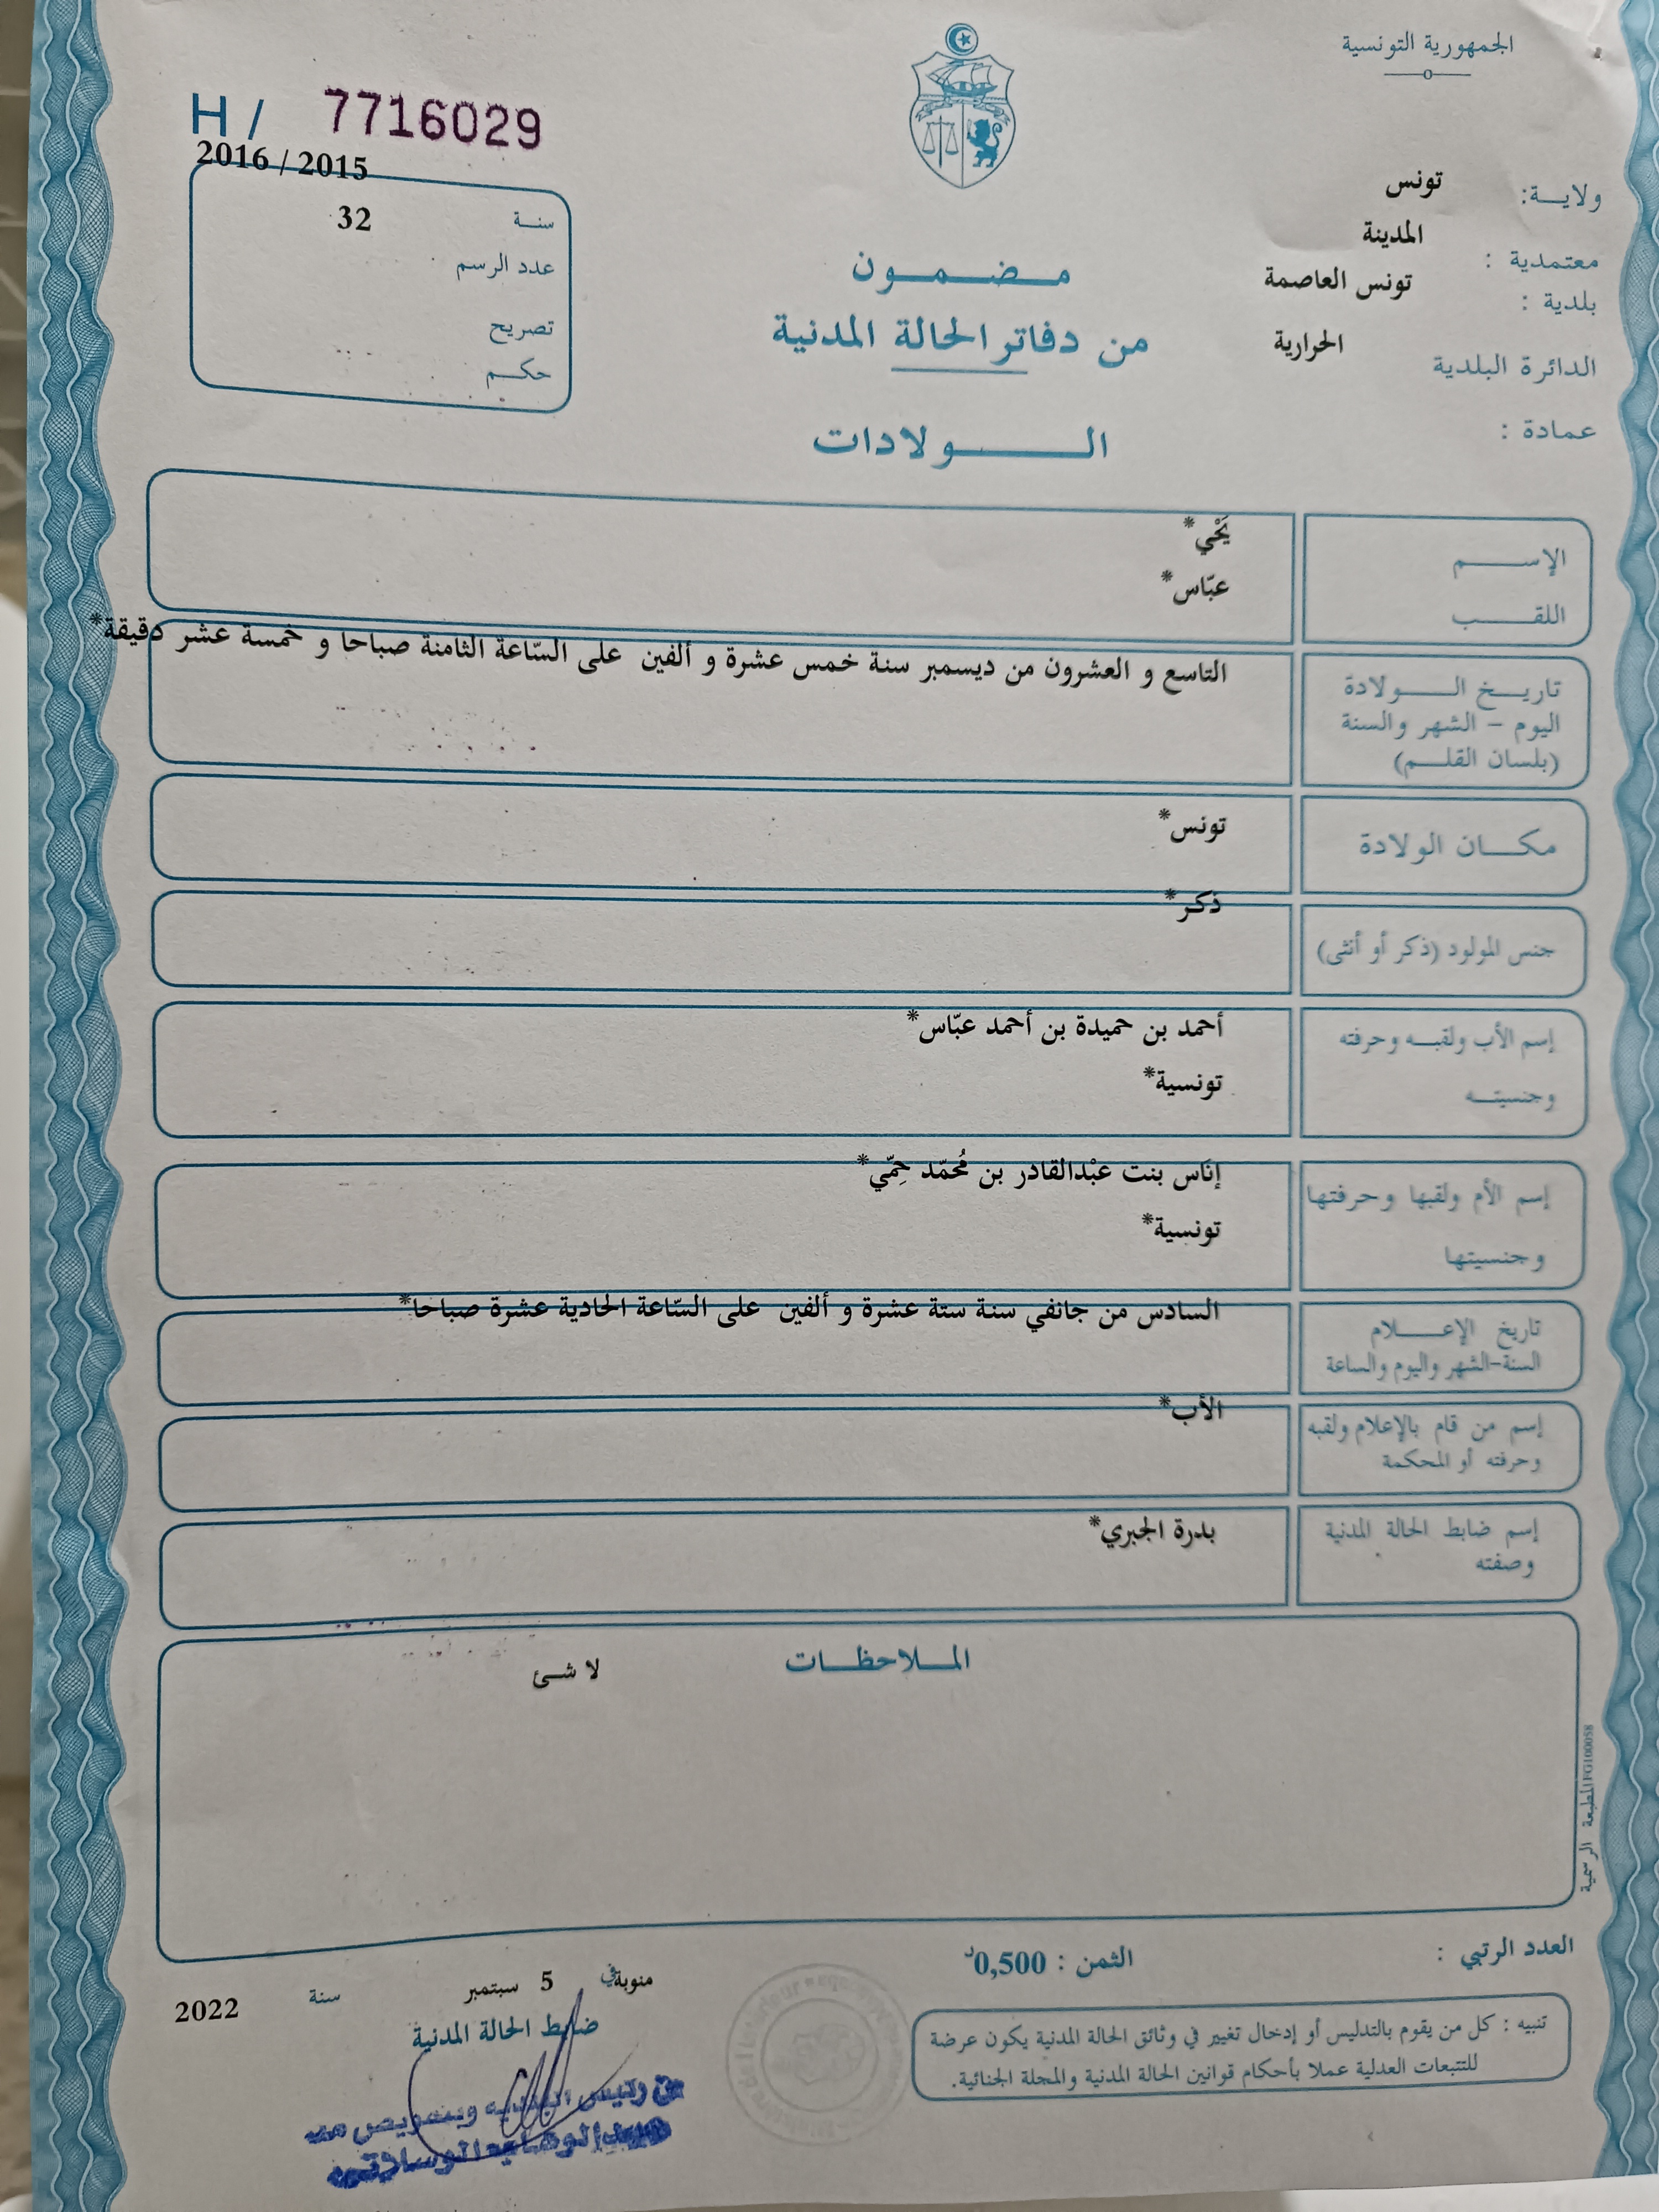 الجمهورية التونسية
H / 7716029
2016 / 2015
سنة 32
عدد الرسم
تصريح
حكم
ولاية: تونس
معتمدية : المدينة
بلدية : تونس العاصمة
الدائرة البلدية الحرارية
عمادة :
مضمون
من دفاتر الحالة المدنية
الولادات
الإسم يَحْي*
اللقب عبّاس*
تاريخ الولادة
اليوم - الشهر والسنة
(بلسان القلم)
التاسع و العشرون من ديسمبر سنة خمس عشرة و ألفين على السّاعة الثامنة صباحا و خمسة عشر دقيقة*
مكان الولادة تونس*
جنس المولود (ذكر أو أنثى) ذكر*
إسم الأب ولقبه وحرفته أحمد بن حميدة بن أحمد عبّاس*
وجنسيته تونسية*
إسم الأم ولقبها وحرفتها إنَاس بنت عبْدالقادر بن مُحمّد حِمّي*
وجنسيتها تونسية*
تاريخ الإعلام
السنة-الشهر واليوم والساعة
السادس من جانفي سنة ستة عشرة و ألفين على السّاعة الحادية عشرة صباحا*
إسم من قام بالإعلام ولقبه
وحرفته أو المحكمة
الأب*
إسم ضابط الحالة المدنية
وصفته
بدرة الجبري*
الملاحظات
لا شئ
المطبعة الرسمية FG100058
العدد الرتبي :
الثمن : 0,500د
منوبة في 5 سبتمبر سنة 2022
ضابط الحالة المدنية
تنبيه : كل من يقوم بالتدليس أو إدخال تغيير في وثائق الحالة المدنية يكون عرضة
للتتبعات العدلية عملا بأحكام قوانين الحالة المدنية والمجلة الجنائية.
عن رئيس البلدية وبتفويض منه
عبدالوهاب الوسلاتي